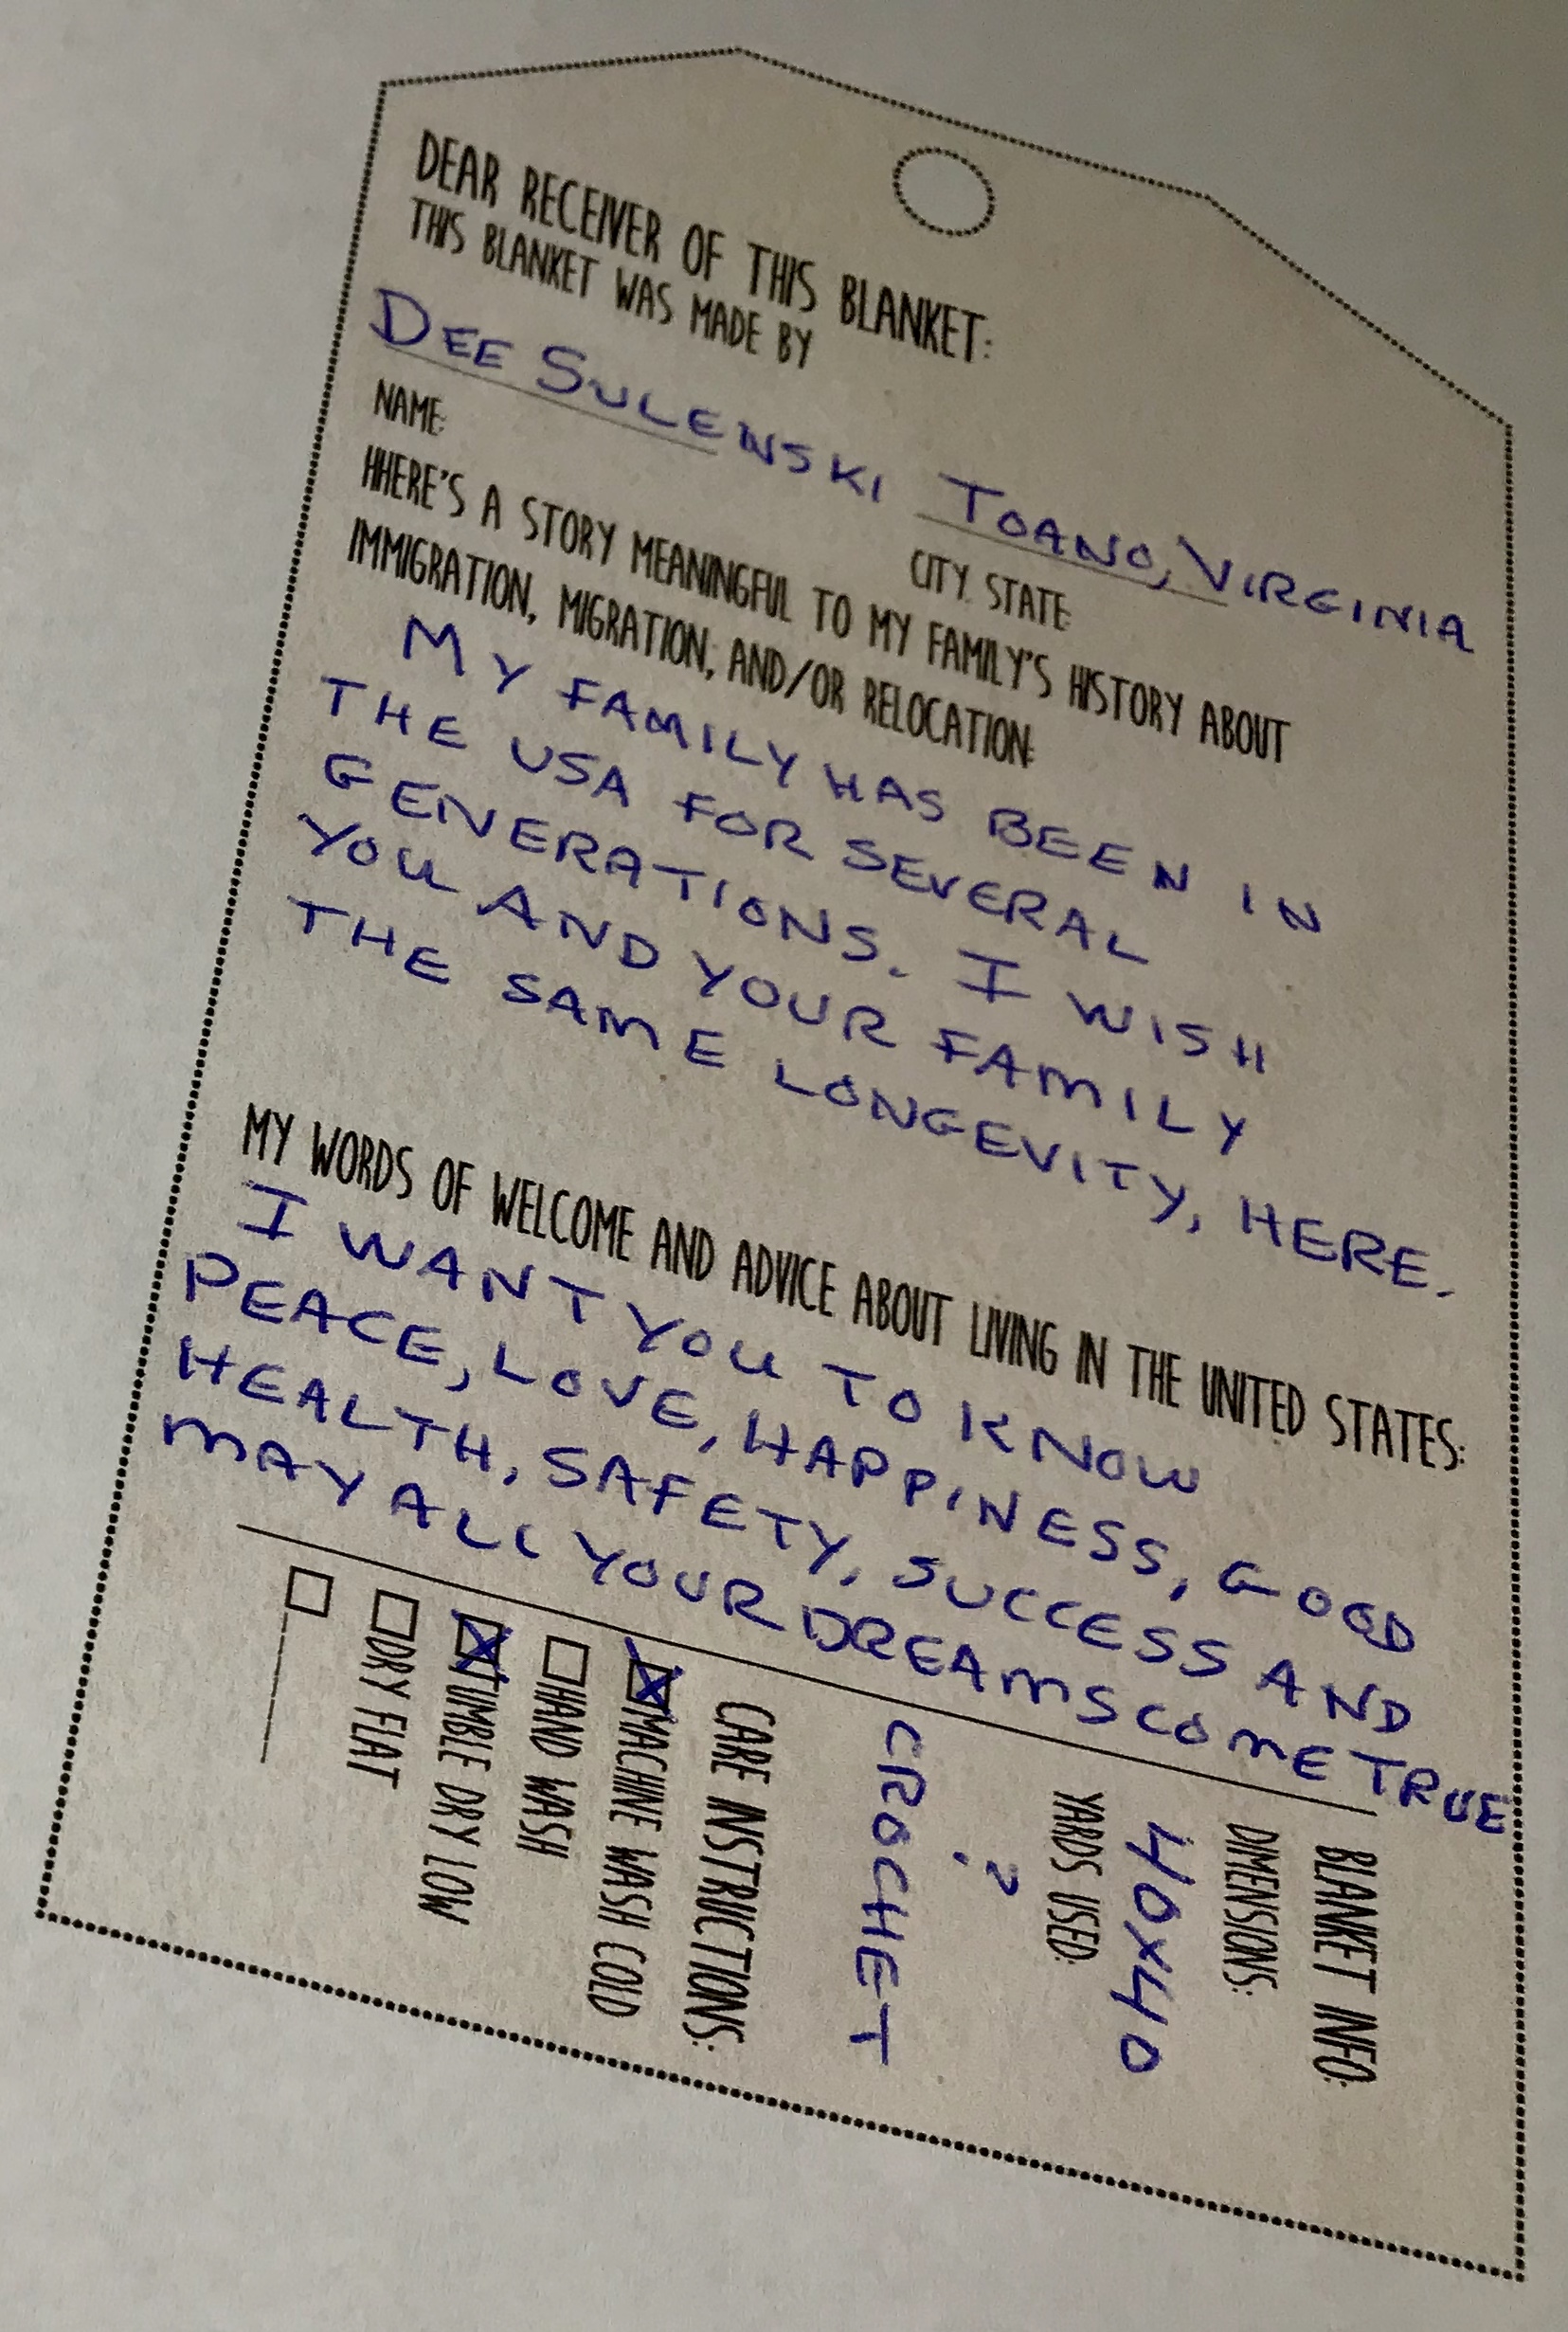 DEAR RECEIVER OF THIS BLANKET:
THIS BLANKET WAS MADE BY
DEE SULENSKI TOANO, VIRGINIA
NAME: CITY, STATE:
HHERE'S A STORY MEANINGFUL TO MY FAMILY'S HISTORY ABOUT
IMMIGRATION, MIGRATION, AND/OR RELOCATION:
MY FAMILY HAS BEEN IN
THE USA FOR SEVERAL
GENERATIONS. I WISH
YOU AND YOUR FAMILY
THE SAME LONGEVITY, HERE.
MY WORDS OF WELCOME AND ADVICE ABOUT LIVING IN THE UNITED STATES:
I WANT YOU TO KNOW
PEACE, LOVE, HAPPINESS, GOOD
HEALTH, SAFETY, SUCCESS AND
MAY ALL YOUR DREAMS COME TRUE
BLANKET INFO:
DIMENSIONS:
40X40
YARDS USED:
?
CROCHET
CARE INSTRUCTIONS:
MACHINE WASH COLD
HAND WASH
TUMBLE DRY LOW
DRY FLAT